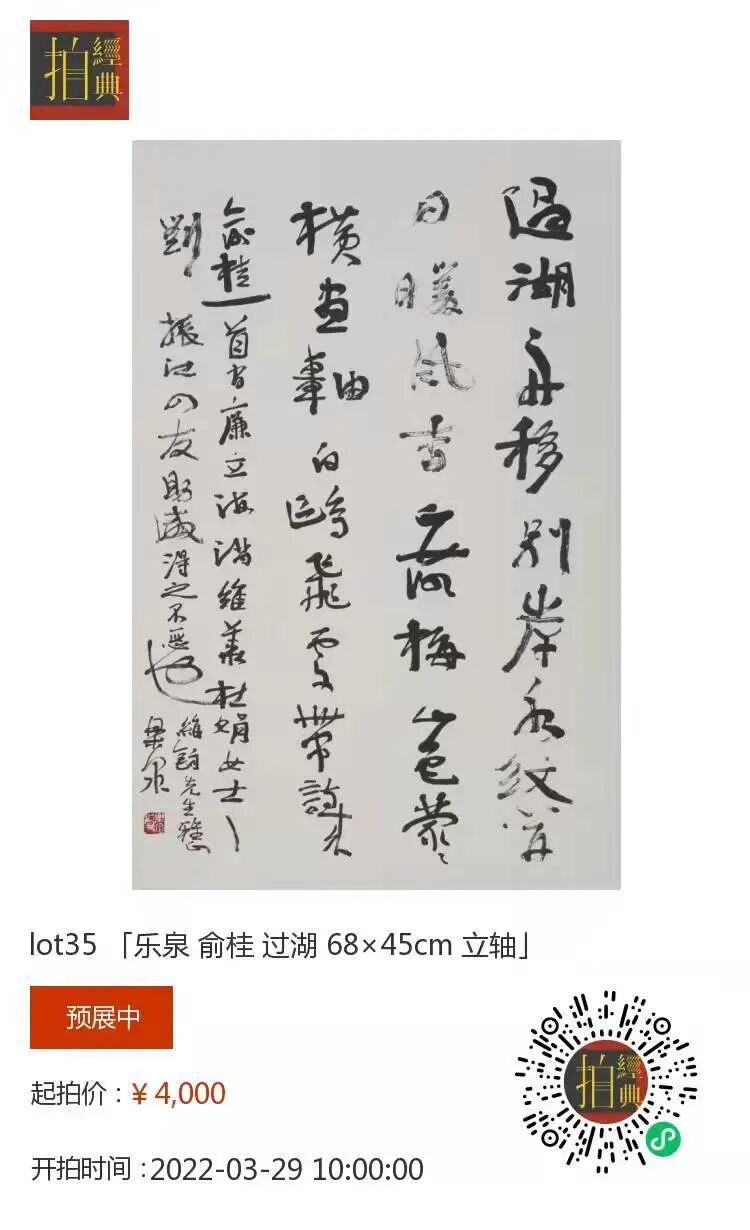 經典拍
過湖 舟移別岸水紋開
日暖風香正落梅 山色蒙〻
橫畫軸 白鷗飛處帶詩来
俞桂一首 廉立海 維義杜娟女士
劉振江 友助 得之不惡也
先生雅
樂泉
lot35 「乐泉 俞桂 过湖 68×45cm 立轴」
预展中
起拍价：¥ 4,000
开拍时间：2022-03-29 10:00:00
經典拍